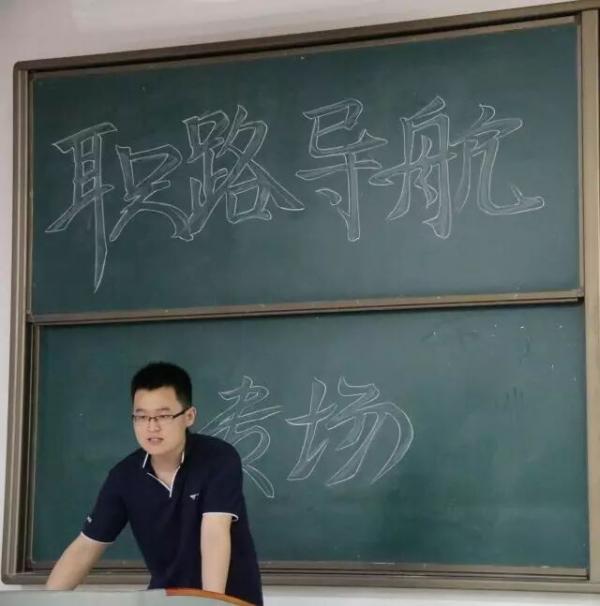 职路导航
专场